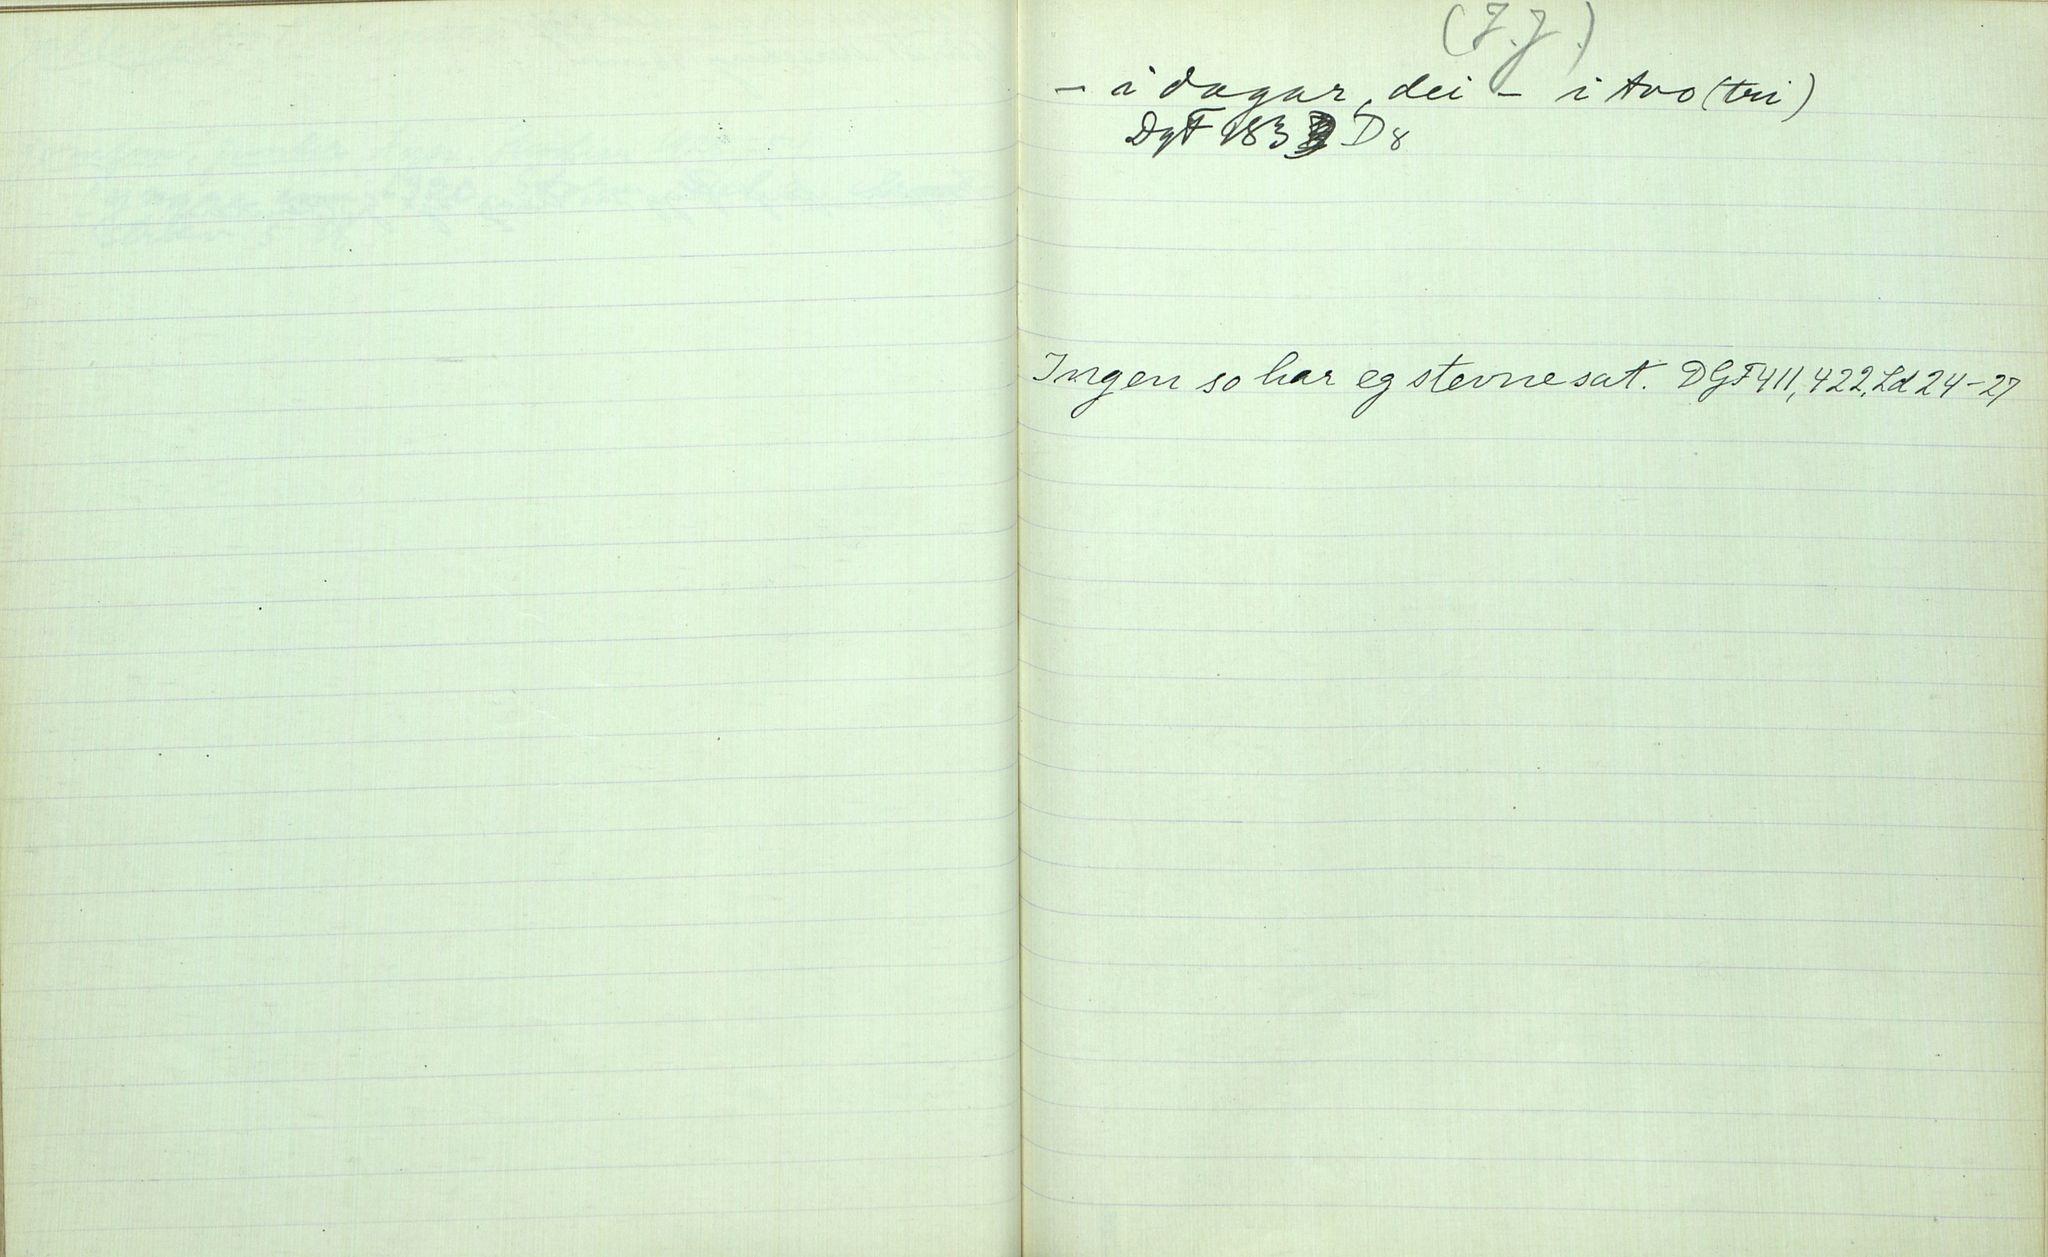 (J.J.)
– i dagar, dei – i tvo (tri)
DgF 183 D 8
Ingen so har eg stevne sat. DGF 411, 422, Ld 24–27